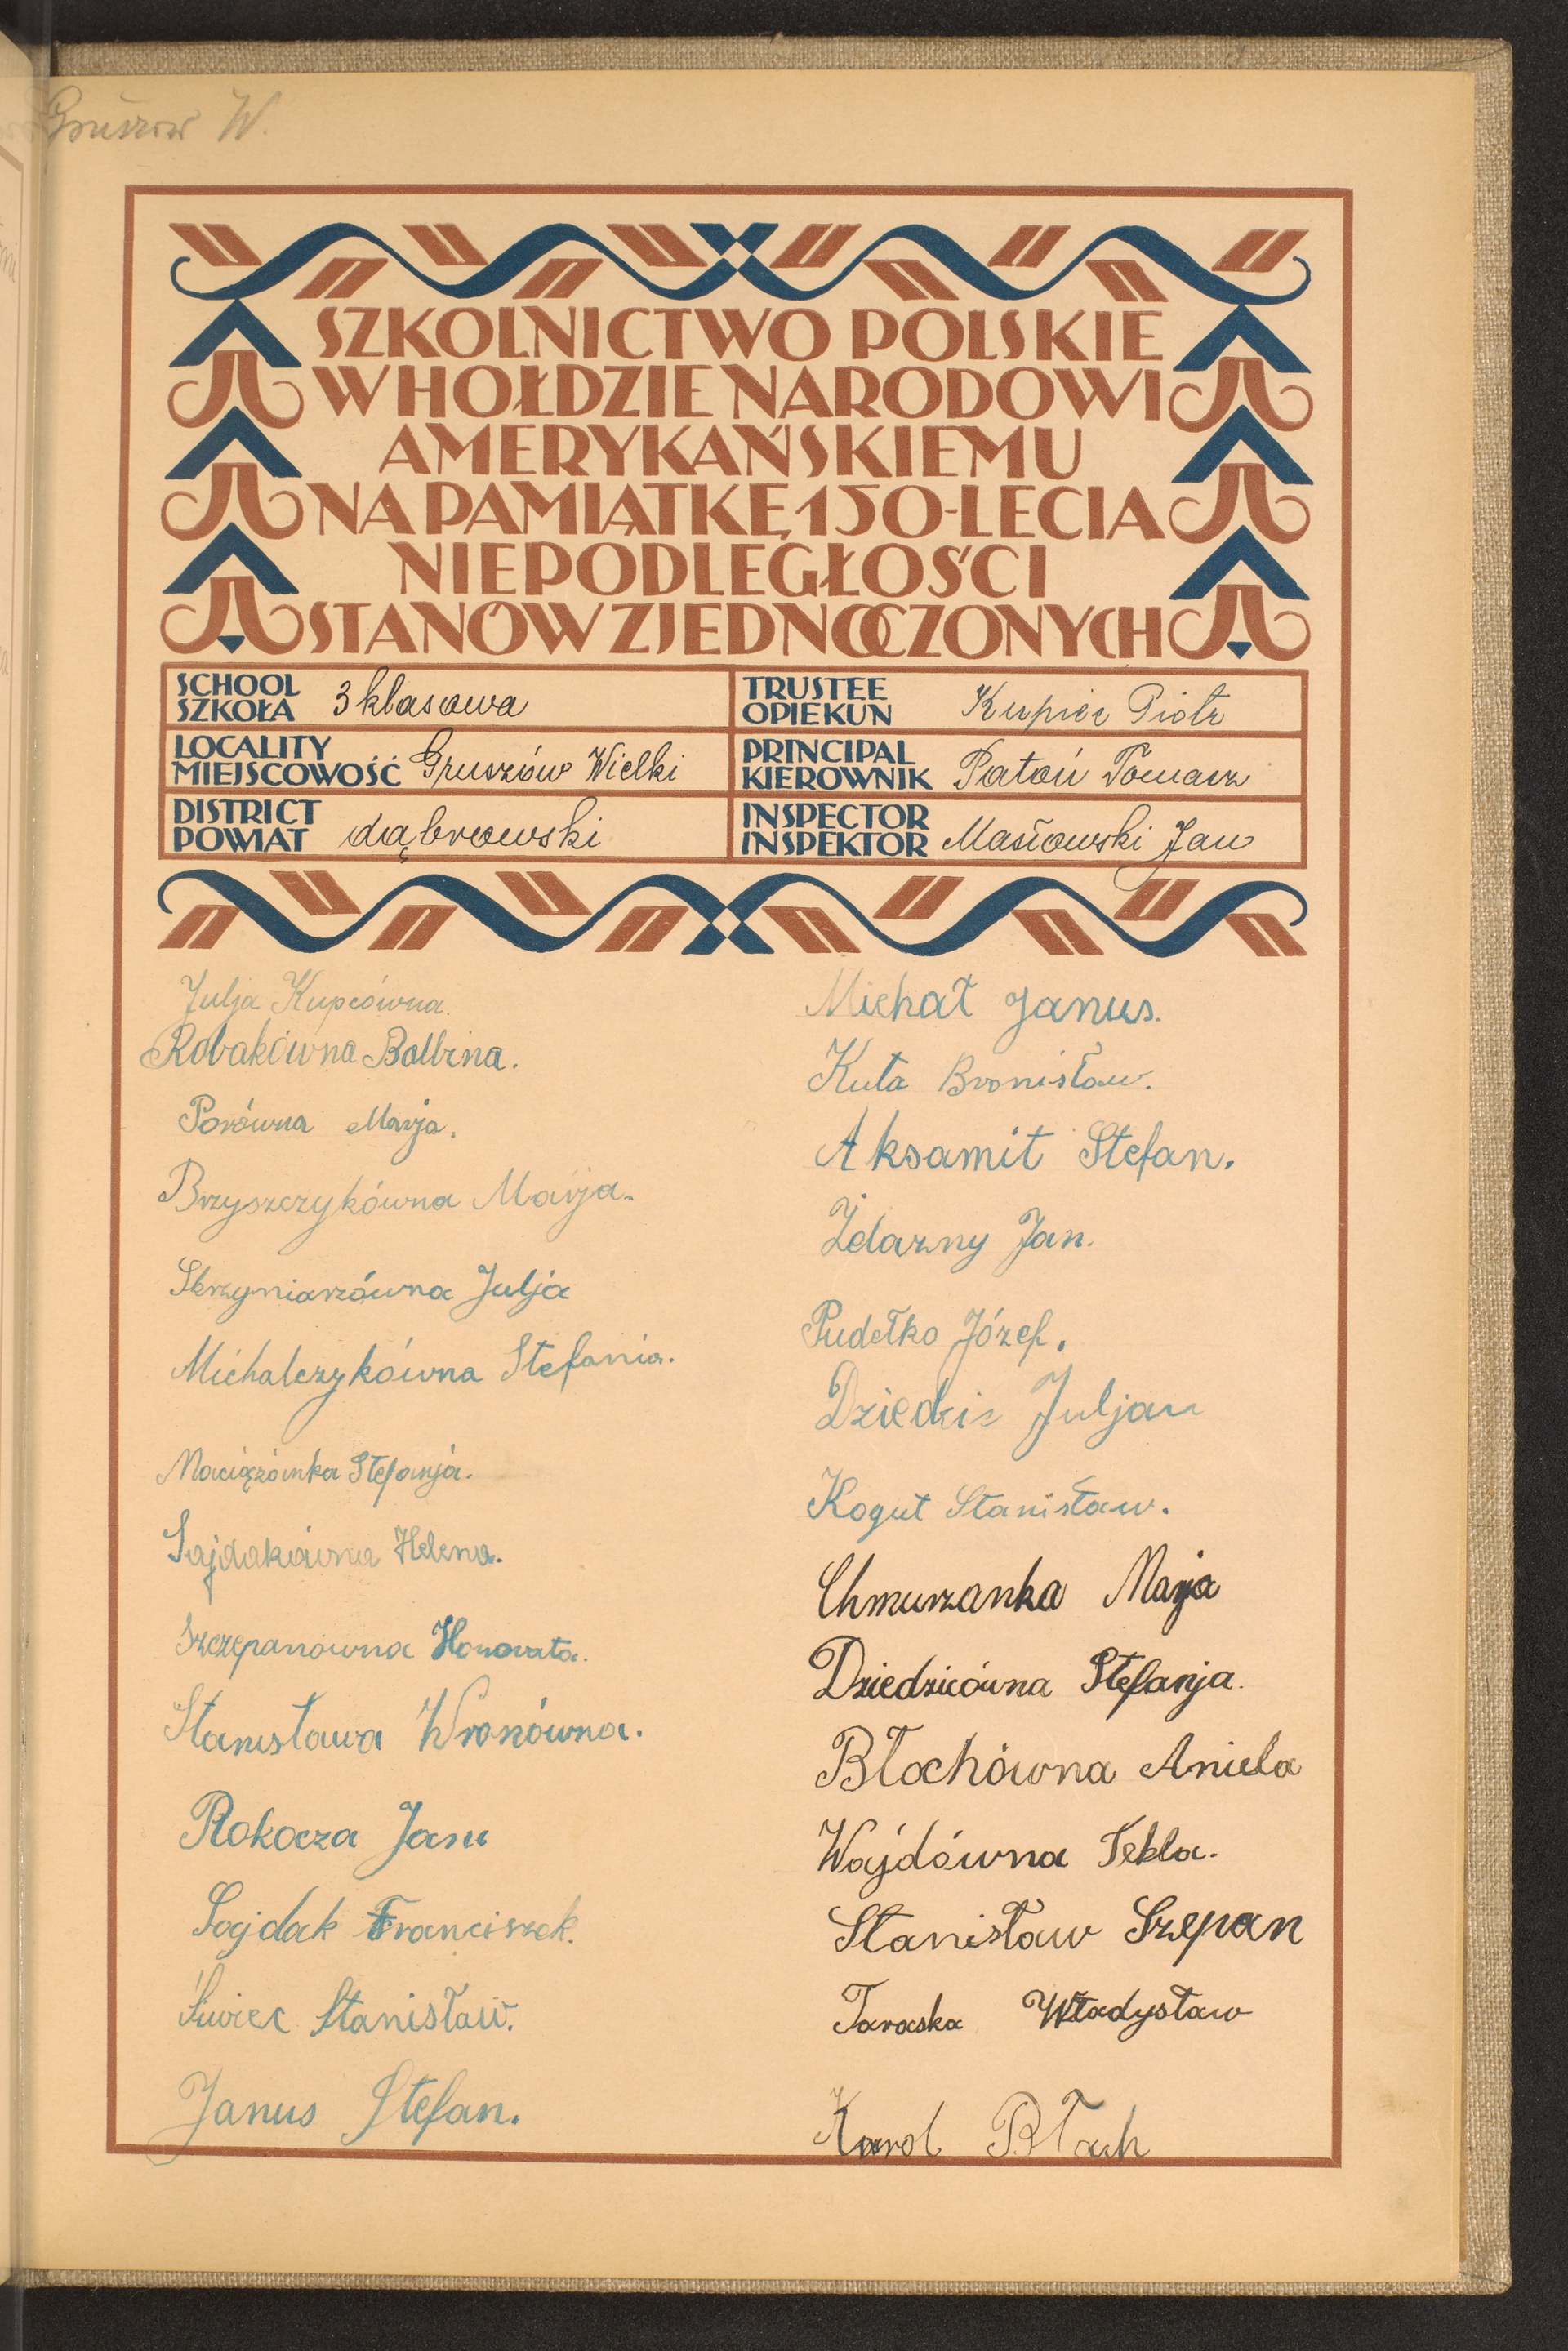 Gruszów W.
SZKOLNICTWO POLSKIE
W HOŁDZIE NARODOWI
AMERYKAŃSKIEMU
NA PAMIĄTKĘ 150-LECIA
NIEPODLEGŁOŚCI
STANÓW ZJEDNOCZONYCH
SCHOOL
SZKOŁA 3 klasowa
TRUSTEE
OPIEKUN Kupiec Piotr
LOCALITY
MIEJSCOWOŚĆ Gruszów Wielki
PRINCIPAL
KIEROWNIK Patoń Tomasz
DISTRICT
POWIAT dąbrowski
INSPECTOR
INSPEKTOR Masłowski Jan
Julja Kupcówna.
Robakówna Balbina.
Porówna Marja.
Brzyszczykówna Marja.
Skrzyniarzówna Julja
Michalczykówna Stefania.
Maciążonka Stefanja.
Sajdakówna Helena.
Szczepanówna Honorata.
Stanisława Wronówna.
Rokocza Jan
Sajdak Franciszek.
Świec Stanisław.
Janus Stefan.
Michał Janus.
Kuta Bronisław.
Aksamit Stefan.
Żdazny Jan.
Pudełko Józef.
Dziedzic Juljan
Kogut Stanisław.
Chmurzanka Marja
Dziedzicówna Stefanja.
Błochówna Aniela
Wojdówna Tekla.
Stanisław Szepan
Taraska Władysław
Karol Błach